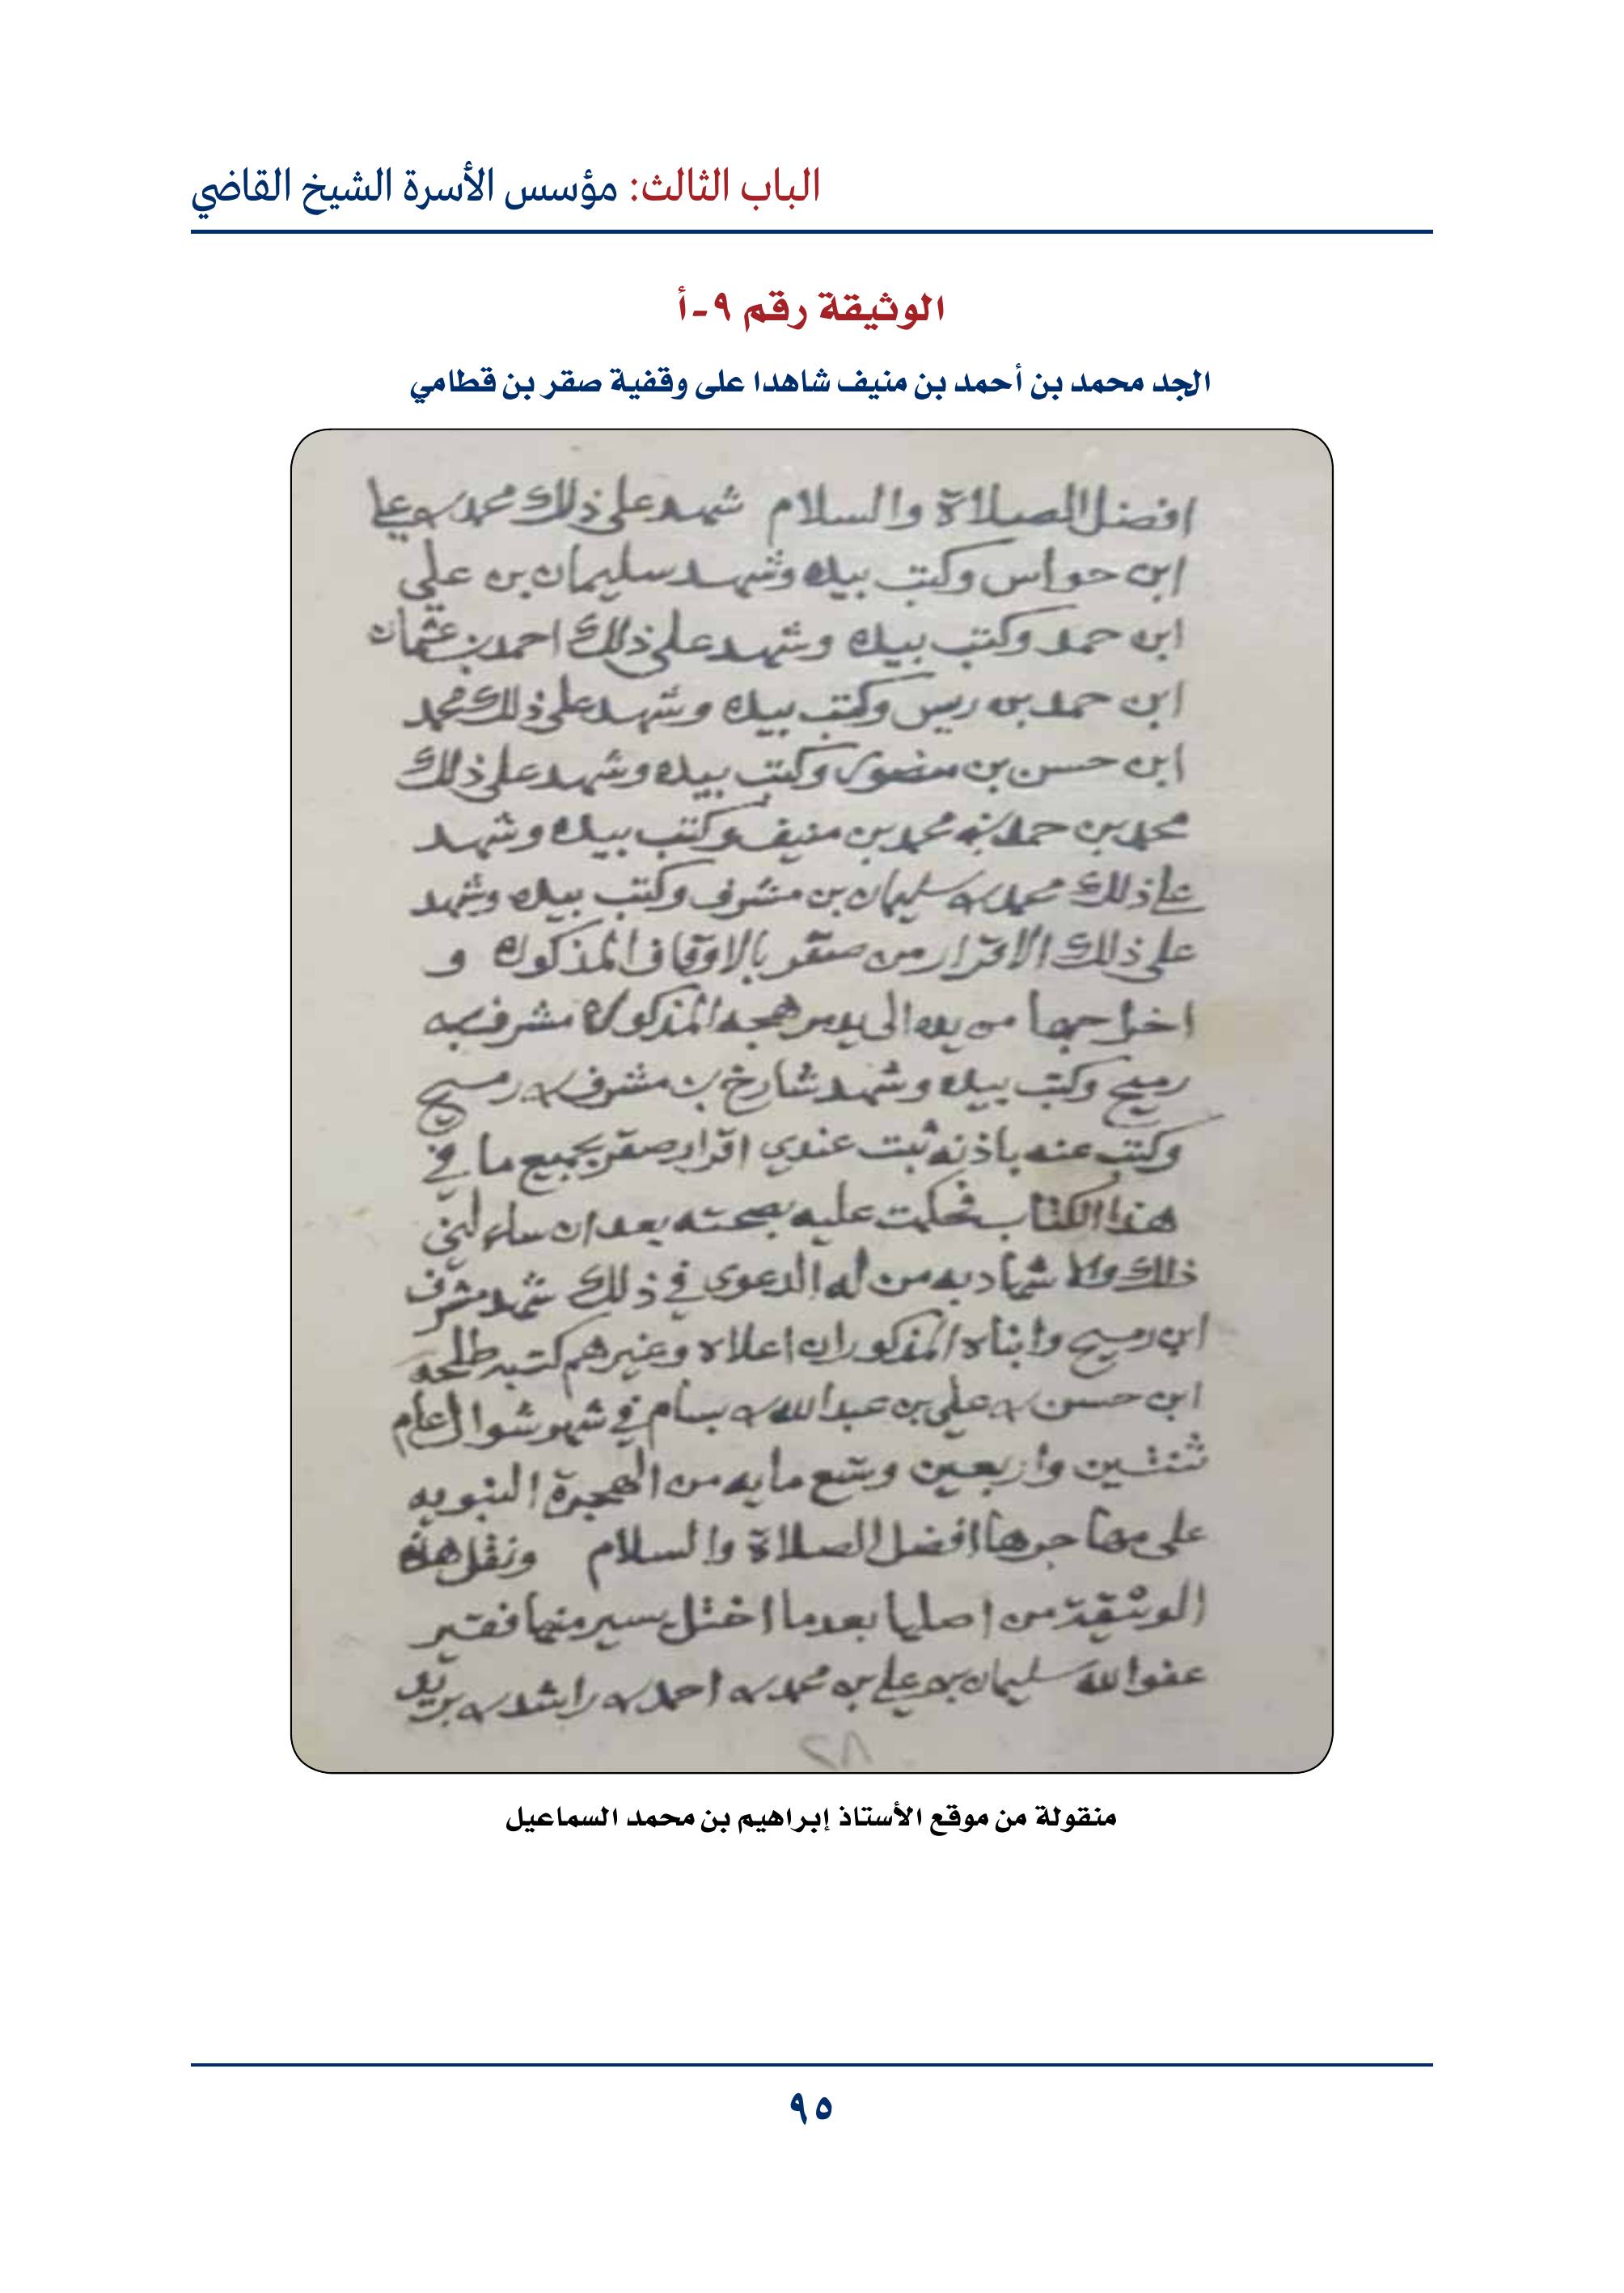 الباب الثالث: مؤسس الأسرة الشيخ القاضي
الوثيقة رقم ٩-أ
الجد محمد بن أحمد بن منيف شاهدا على وقفية صقر بن قطامي
افضل الصلاة والسلام شهد على ذلك محمد بن علي
ابن حواس وكتب بيده وشهد سليمان بن علي
ابن حمد وكتب بيده وشهد على ذلك احمد بن عثمان
ابن حمد بن ريس وكتب بيده وشهد على ذلك محمد
ابن حسن بن منصور وكتب بيده وشهد على ذلك
محمد بن حمد بن محمد بن منيف وكتب بيده وشهد
على ذلك محمد بن سليمان بن مشرف وكتب بيده وشهد
على ذلك الاقرار من صقر بالاوقاف المذكوره و
اخراجها من يده الى يد المذكوره مشرف بن
رميح وكتب بيده وشهد شارخ بن مشرف بن رميح
وكتب عنه باذنه ثبت عندي اقرار صقر بجميع ما في
هذا الكتاب فحكمت عليه بصحته بعد ان ساءلني
ذلك من له الدعوى في ذلك شهد مشرف
ابن رميح وابناه المذكوران اعلاه وغيرهم كتبه طلحه
ابن حسن بن علي بن عبدالله بن بسام في شهر شوال عام
ثنتين واربعين وتسع مايه من الهجرة النبويه
على مهاجرها افضل الصلاة والسلام ونقل هذه
الوثيقة من اصلها بعدما اختل يسير منها فقير
عفو الله سليمان بن علي بن محمد بن احمد بن راشد بن بريد
٢٨
منقولة من موقع الأستاذ إبراهيم بن محمد السماعيل
٩٥